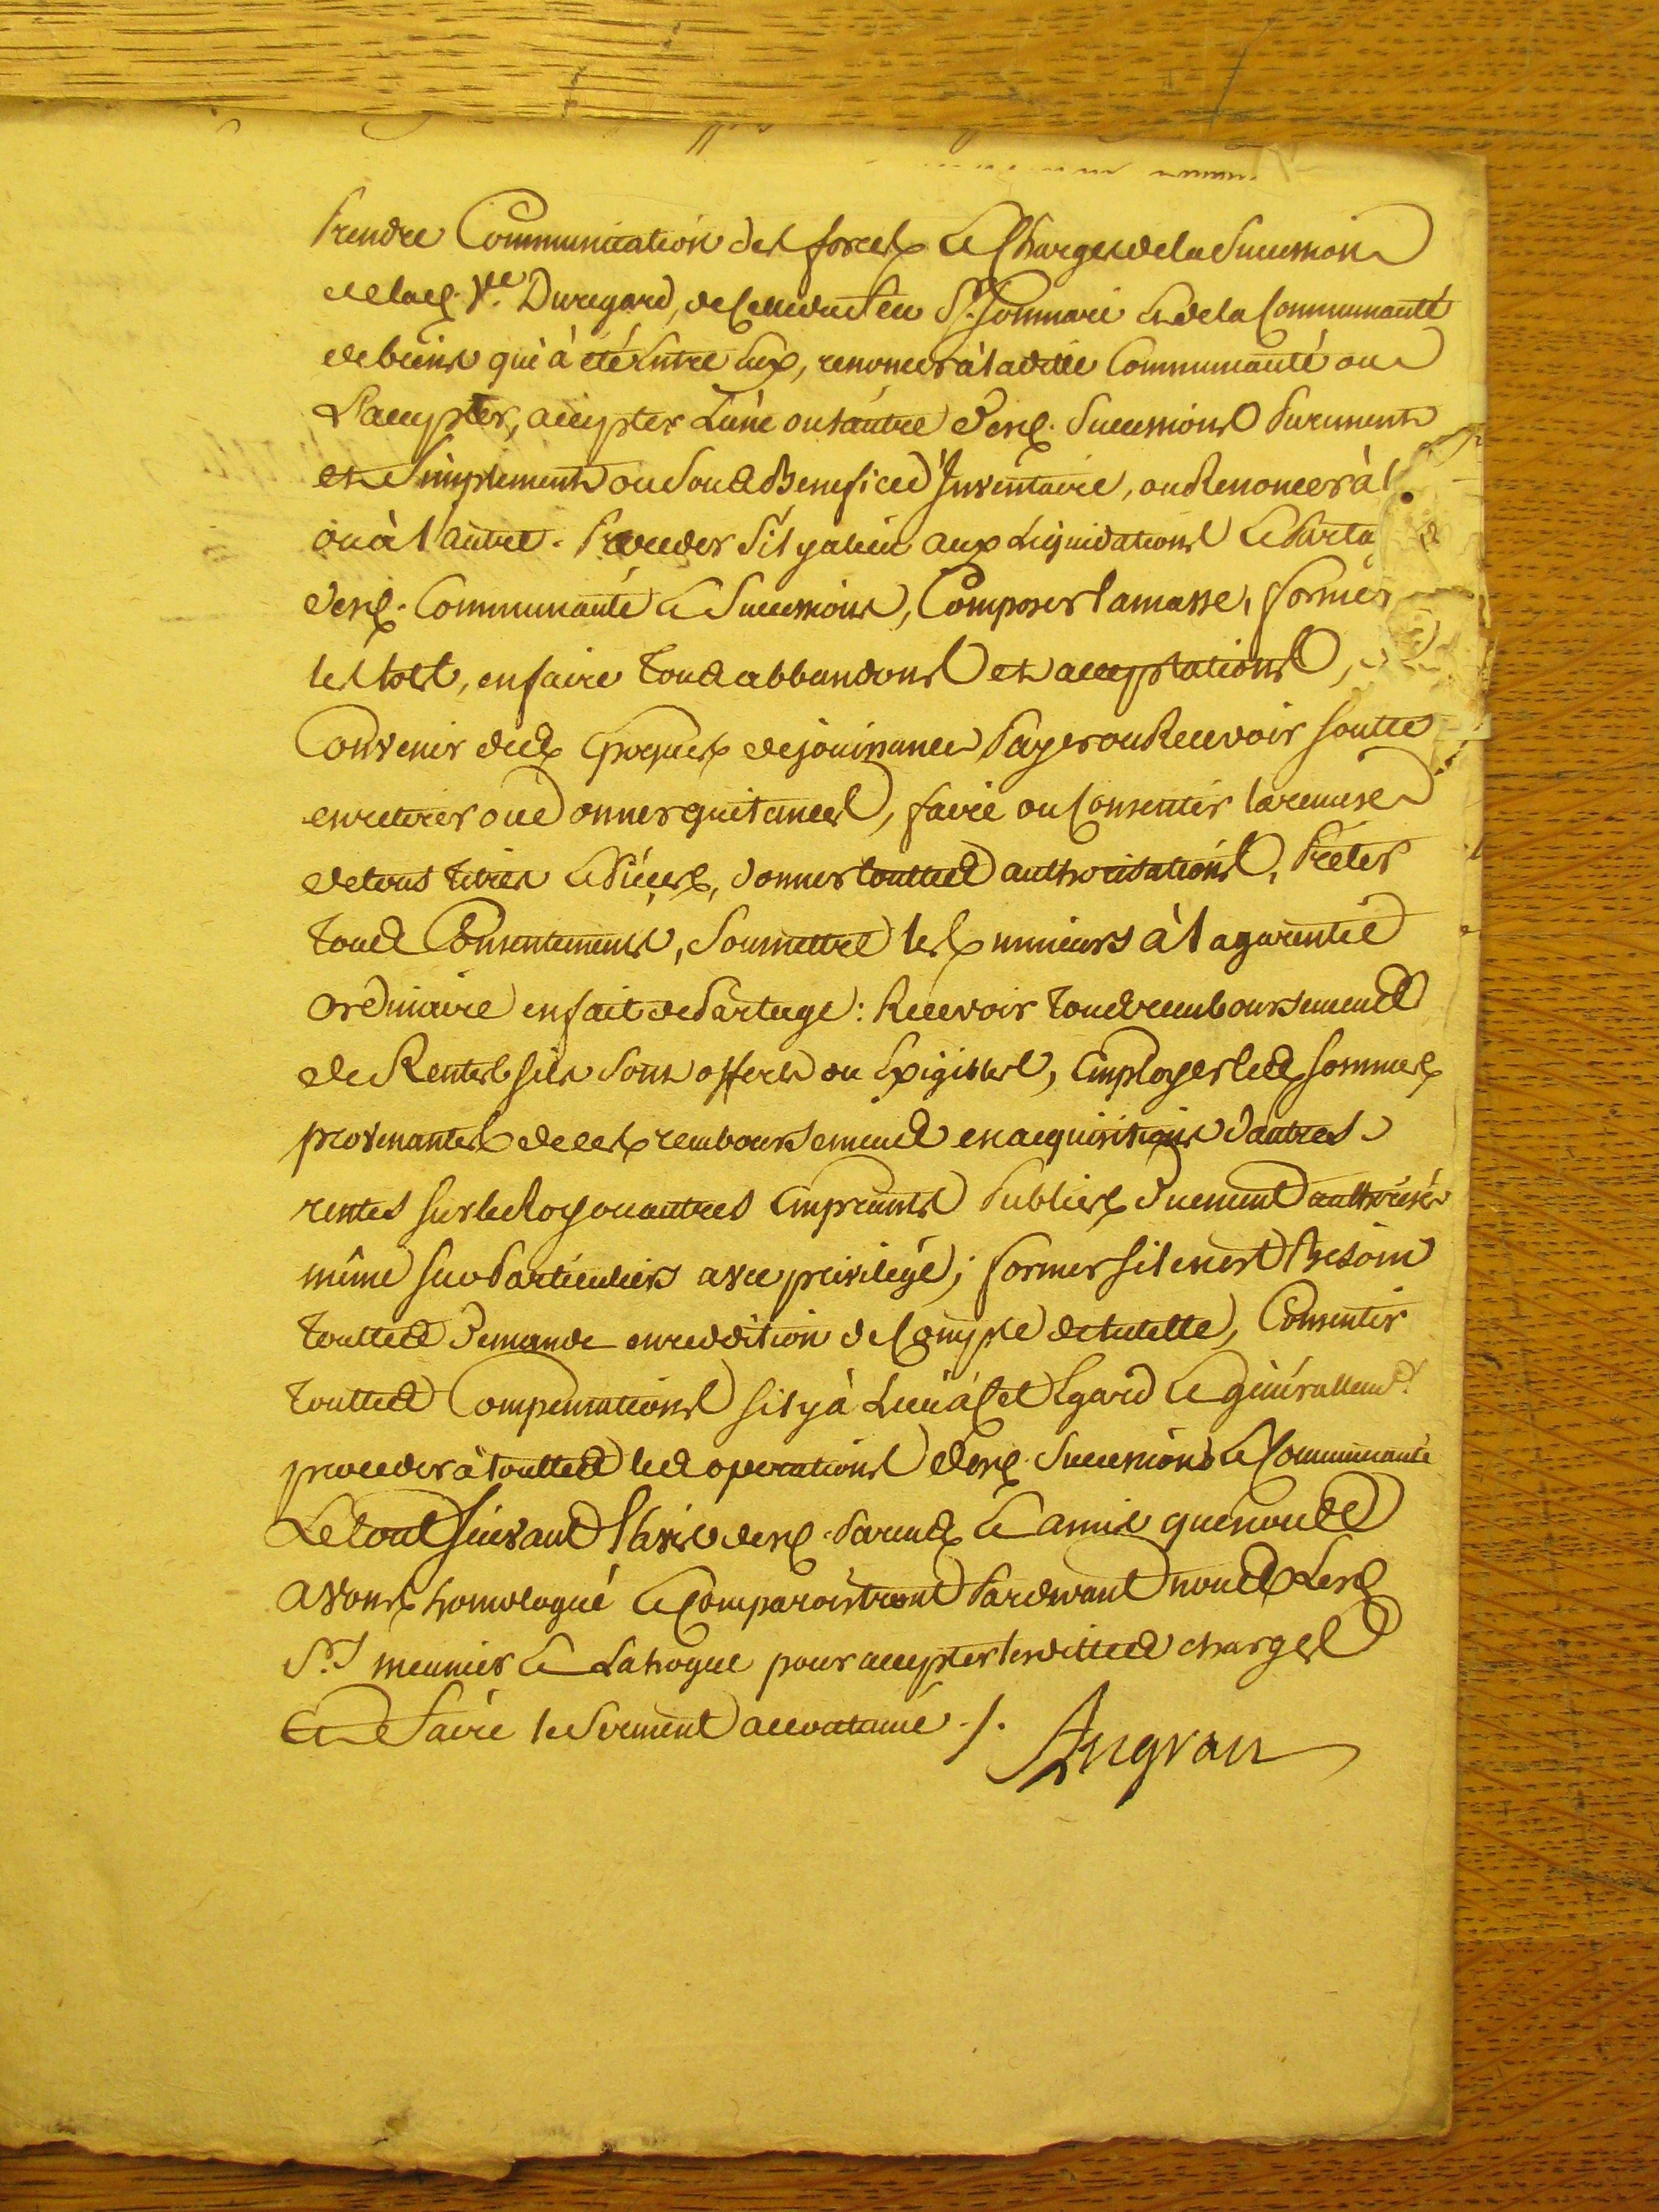 Prendre Communication des forces et Charges de la Succession
de lad. Ve. Duregard, de celle dud. feu Sr. son mari et de la Communauté
de biens qui à été Entre Eux, renoncer à laditte Communauté ou
L'accepter, accepter L'une ou l'autre desd. Successions Purement
et Simplement ou Sous Benefice d'Inventaire, ou Renoncer à l'
ou à l'autre. Proceder S'il y a lieu aux Liquidations et Parta
desd. Communauté et Successions, Composer la masse, former
les lots, en faire Tous abbandons et acceptations,
Convenir des Epoques de jouissance Payer ou Recevoir soutte
en retirer ou Donner quitances, faire ou Consentir la remise
de tous titres et Pieces, donner touttes authorisations, Prêter
Tous Consentements, Soumettre les mineurs à la garentie
ordinaire en fait de Partage : Recevoir Tous remboursements
de Rentes s'ils sont offerts ou Exigibles, Employer les sommes
provenantes de ces remboursements en acquisitions d'autres
rentes sur le Roy ou autres Emprunts Publics duement authorisés
même sur Particuliers avec privilége ; former s'il en est Besoin
Touttes Demande en reddition de Compte de tutelle, Consentir
Touttes Compensations s'il y à Lieu à cet Egard et générallemt.
proceder à touttes les operations desd. Successions et Communauté
Le tout suivant l'avis desd. Parents et amis que nous
avons homologué et Comparoistront Pardevant nous Lesd.
Srs meunier et Lahogue pour accepter lesdittes charges
et Faire le Serment accoutumé ./. Angran